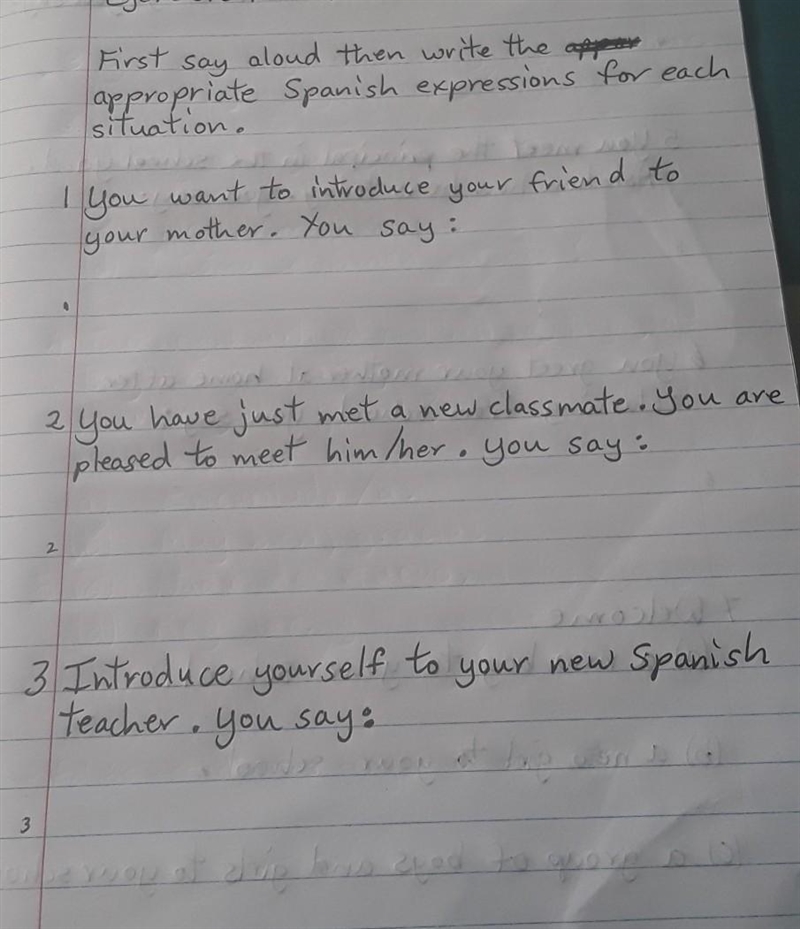 First say aloud then write the
appropriate Spanish expressions for each
situation.
1 You want to introduce your friend to
your mother. You say:
2 You have just met a new classmate. You are
pleased to meet him/her. You say:
2
3 Introduce yourself to your new Spanish
teacher. You say:
3